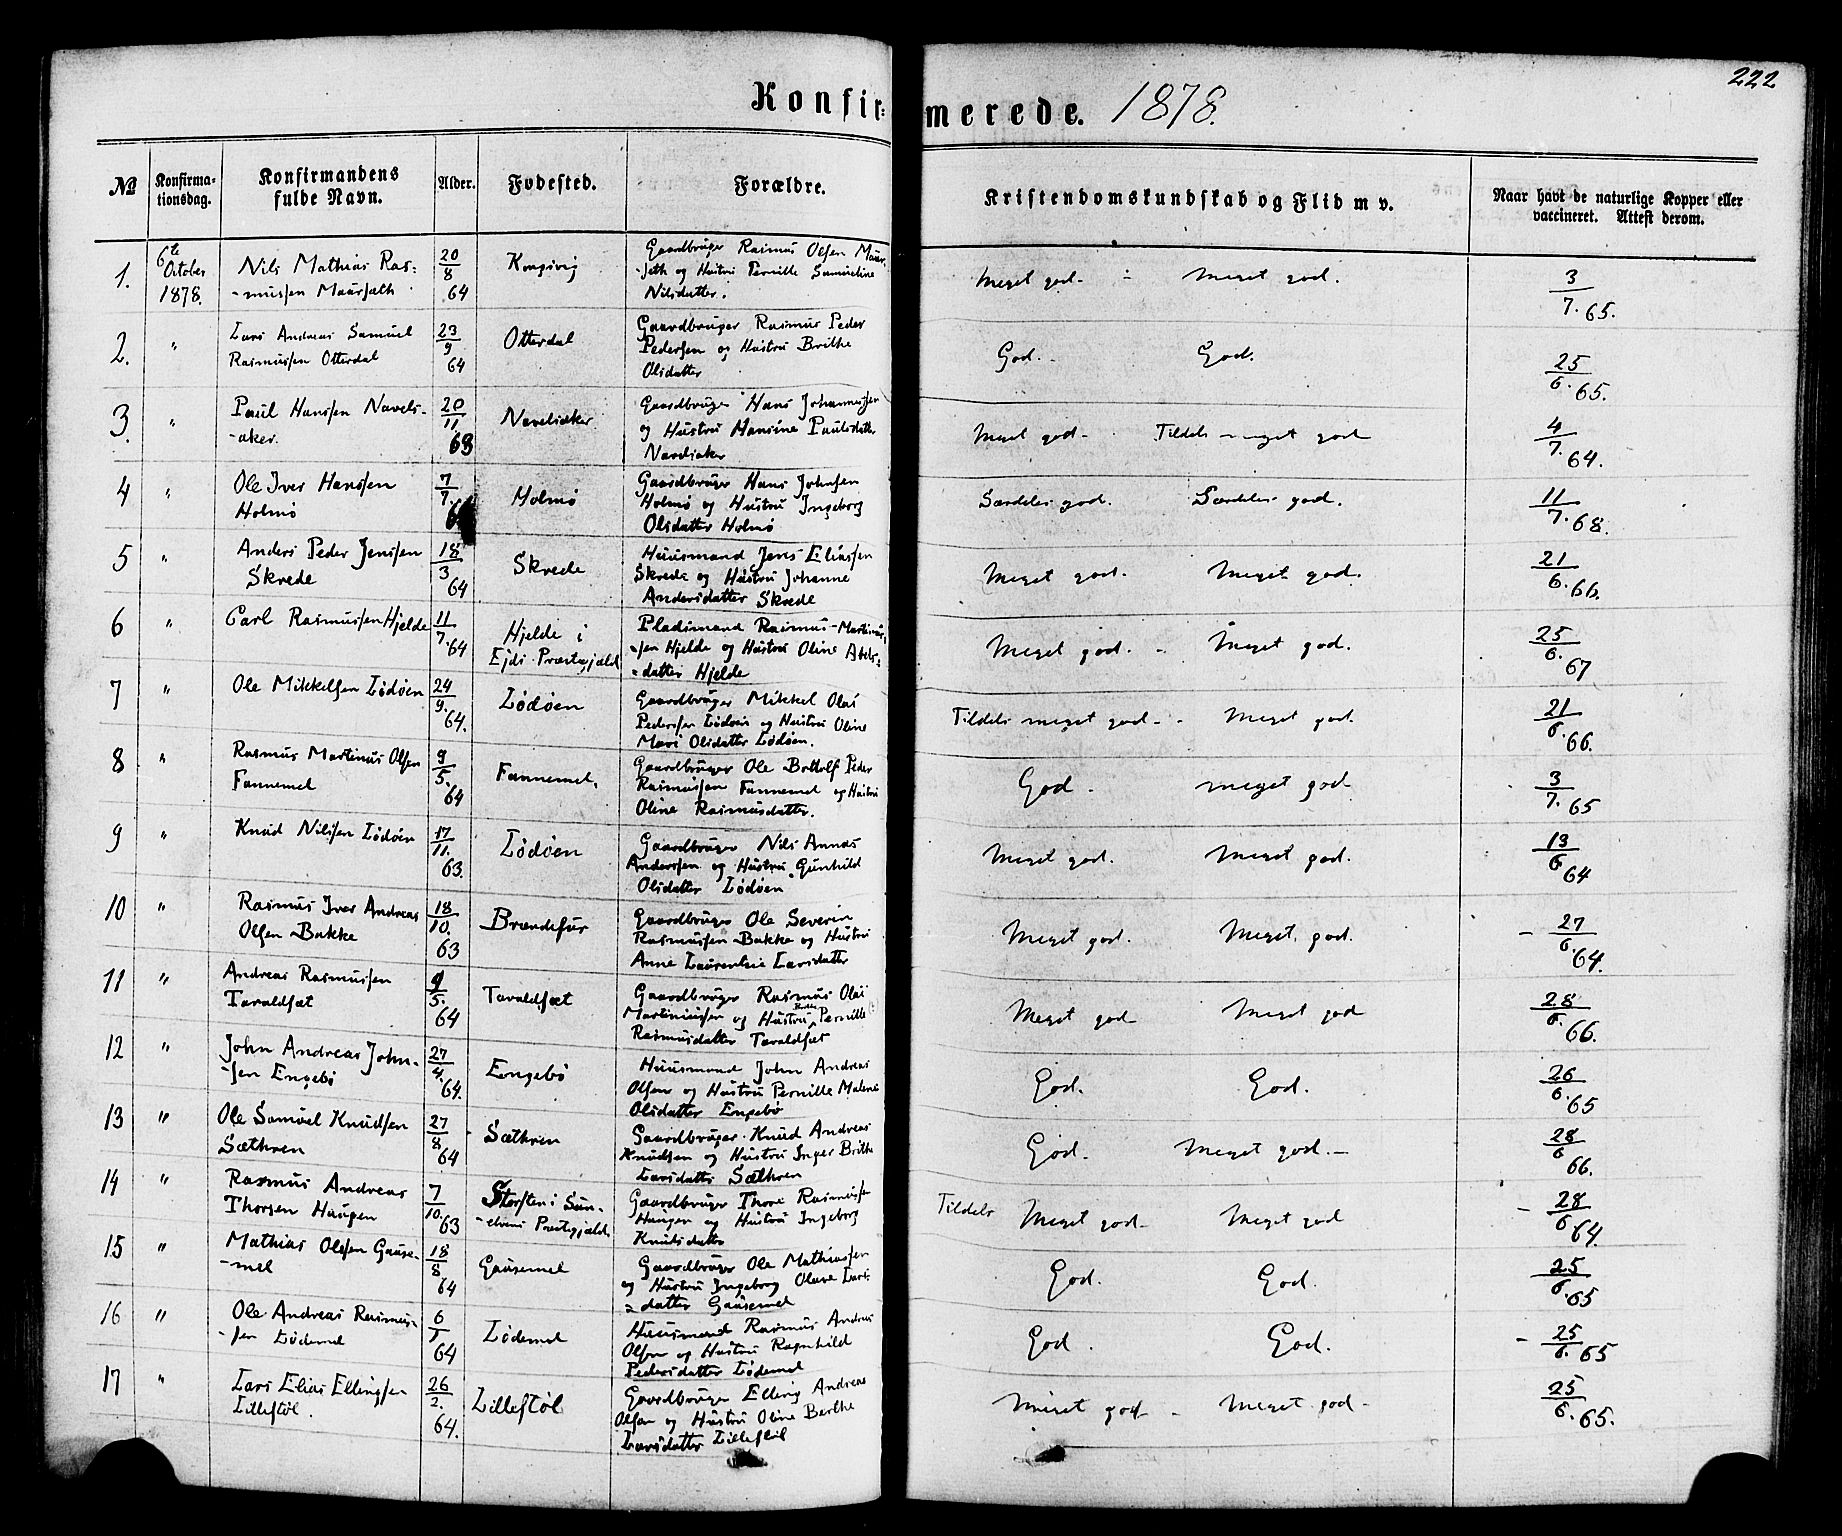 222
Konfir=
merede. 1878.
№
Konfirma-
tionsdag.
Konfirmandens
fulde Navn.
Alder.
Fodested.
Forældre.
Kristendomskundskab og Flid m v.
Naar havt de naturlige Kopper eller
vaccineret. Attest derom.
1.
6te
October
1878.
Nils Mathias Ras:
-mussen Maurseth
20/8 64
Kongsvig
Gaardbruger Rasmus Olsen Maur-
-seth og Hustru Pernille Samueline
Nilsdatter.
Meget god - Meget god.
3/7. 65.
2. "
Lars Andreas Samuel
Rasmussen Otterdal
23/9 64
Otterdal
Gaardbruger Rasmus Peder
Pedersen og Hustru Brithe
Olsdatter
God. - God.
25/6. 65.
3. "
Paul Hanssen Navels-
-aker.
20/11 63
Navelsaker
Gaardbruger Hans Johannessen
og Hustru Hansine Paulsdatter
Meget god - Tildels meget god
4/7. 64.
4 "
Ole Iver Hanssen
Holmø
7/7.
Holmø
Gaardbruger Hans Johnsen
Holmø og Hustru Ingeborg
Olsdatter Holmø
Særdeles god. Særdeles god.
11/7. 68.
5 "
Anders Peder Jenssen
Skrede
18/3 64
Skrede
Huusmand Jens Eliassen
Skrede og Hustru Johanne
Andersdatter Skrede
Meget god. Meget god.
21/6. 66.
6 "
Carl Rasmussen Hjelde
11/7. 64
Hjelde i
Ejds Præstegjæld
Pladsmand Rasmus Martinus-
-sen Hjelde og Hustru Oline Abels-
-datter Hjelde
Meget god. - Meget god.
25/6. 67
7 "
Ole Mikkelsen Lødøen
24/9. 64.
Lødøen
Gaardbruger Mikkel Olai
Pederssen Lødøen og Hustru Oline
Mari Olsdatter Lødøen.
Tildels meget god - Meget god.
21/6. 66.
8 "
Rasmus Martinus Olsen
Fannemel
9/5. 64
Fannemel.
Gaardbruger Ole Bottolf Peder
Rasmussen Fannemel og Hustru
Oline Rasmusdatter.
God. meget god-
3/7. 65
9 "
Knud Nilssen Lødøen
17/11. 63.
Lødøen
Gaardbruger Nils Annas
Anderssen og Hustru Gunhild
Olsdatter Lødøen
Meget god. Meget god.
13/6 64
10 "
Rasmus Iver Andreas
Olsen Bakke
18/10. 63
Brændefur
Gaardbruger Ole Severin
Rasmussen Bakke og Hustru
Anne Laurentsie Larsdatter
Meget god. Meget god.
- 27/6. 64.
11 "
Andreas Rasmussen
Taraldset
9/5. 64
Taraldsæt
Gaardbruger Rasmus Olai
Martinussen og Hustru Berthe Pernille
Rasmusdatter Taraldsæt
Meget god Meget god
28/6. 66.
12 "
John Andreas John-
-sen Engebø
27/4. 64.
Engebø
Huusmand John Andreas
Olsen og Hustru Pernille Malene
Olsdatter Engebø
God. God.
26/6. 65
13 "
Ole Samuel Knudsen
Sæthren
27/8 64
Sæthren
Gaardbruger Knud Andreas
Knudsen og Hustru Inger Brithe
Larsdatter Sæthren
God. Meget god.-
28/6 66.
14 "
Rasmus Andreas
Thorsen Haugen
7/10. 63
Storsten i Sun-
-elvens Præstegjæld.
Gaardbruger Thore Rasmussen
Haugen og Hustru Ingeborg
Knudsdatter
Tildels Meget god- Meget god
- 28/6 64.
15 "
Mathias Olssen Gause-
-mel
18/8. 64
Gausemel
Gaardbruger Ole Mathiassen
og Hustru Ingeborg Oline Lars-
-datter Gausemel
God. God.
25/6. 65
16 "
Ole Andreas Rasmus-
-sen Lødemel
6/1 64
Lødemel
Huusmand Rasmus Andreas
Olsen og Hustru Ragnhild
Pedersdatter Lødemel
God. God.
- 25/6. 65
17 "
Lars Elias Ellingsen
Lillestøl.
26/2. 64.
Lillestøl
Gaardbruger Elling Andreas
Olsen og Hustru Oline Berthe
Larsdatter Lillestøl
Meget god - Meget god-
25/6. 65.